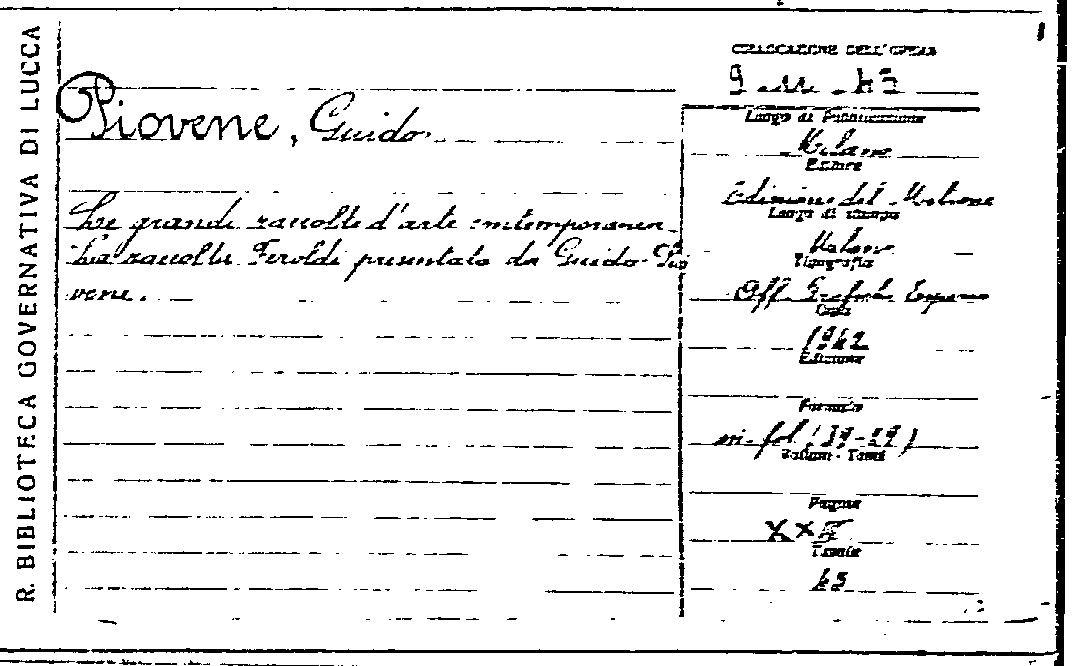 R. BIBLIOTECA GOVERNATIVA DI LUCCA
Piovene, Guido.
Le grandi raccolte d'arte contemporanea
La raccolta Feroldi presentata da Guido Pio
vene.
COLLOCAZIONE DELL'OPERA
Luogo di Pubblicazione
Milano
Editore
Edizione del Milione
Luogo di stampa
Milano
Tipografia
Off. Grafiche Esperia
Data
1942
Edizione
Formato
in-fol (39-29)
Volumi - Tomi
Pagine
Tavole